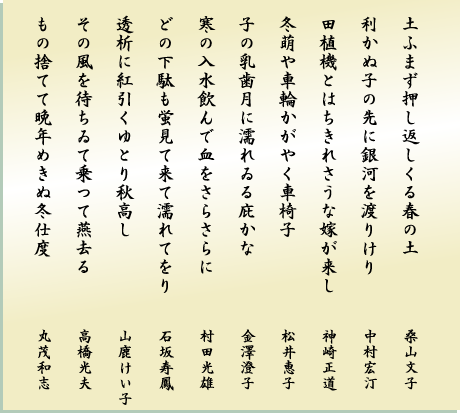 土ふまず押し返しくる春の土 桑山文子
利かぬ子の先に銀河を渡りけり 中村宏汀
田植機とはちきれさうな嫁が来し 神崎正道
冬萌や車輪かがやく車椅子 松井惠子
子の乳歯月に濡れゐる庇かな 金澤澄子
寒の入水飲んで血をさらさらに 村田光雄
どの下駄も蛍見て来て濡れてをり 石坂寿鳳
透析に紅引くゆとり秋高し 山鹿けい子
その風を待ちゐて乗つて燕去る 高橋光夫
もの捨てて晩年めきぬ冬仕度 丸茂和志